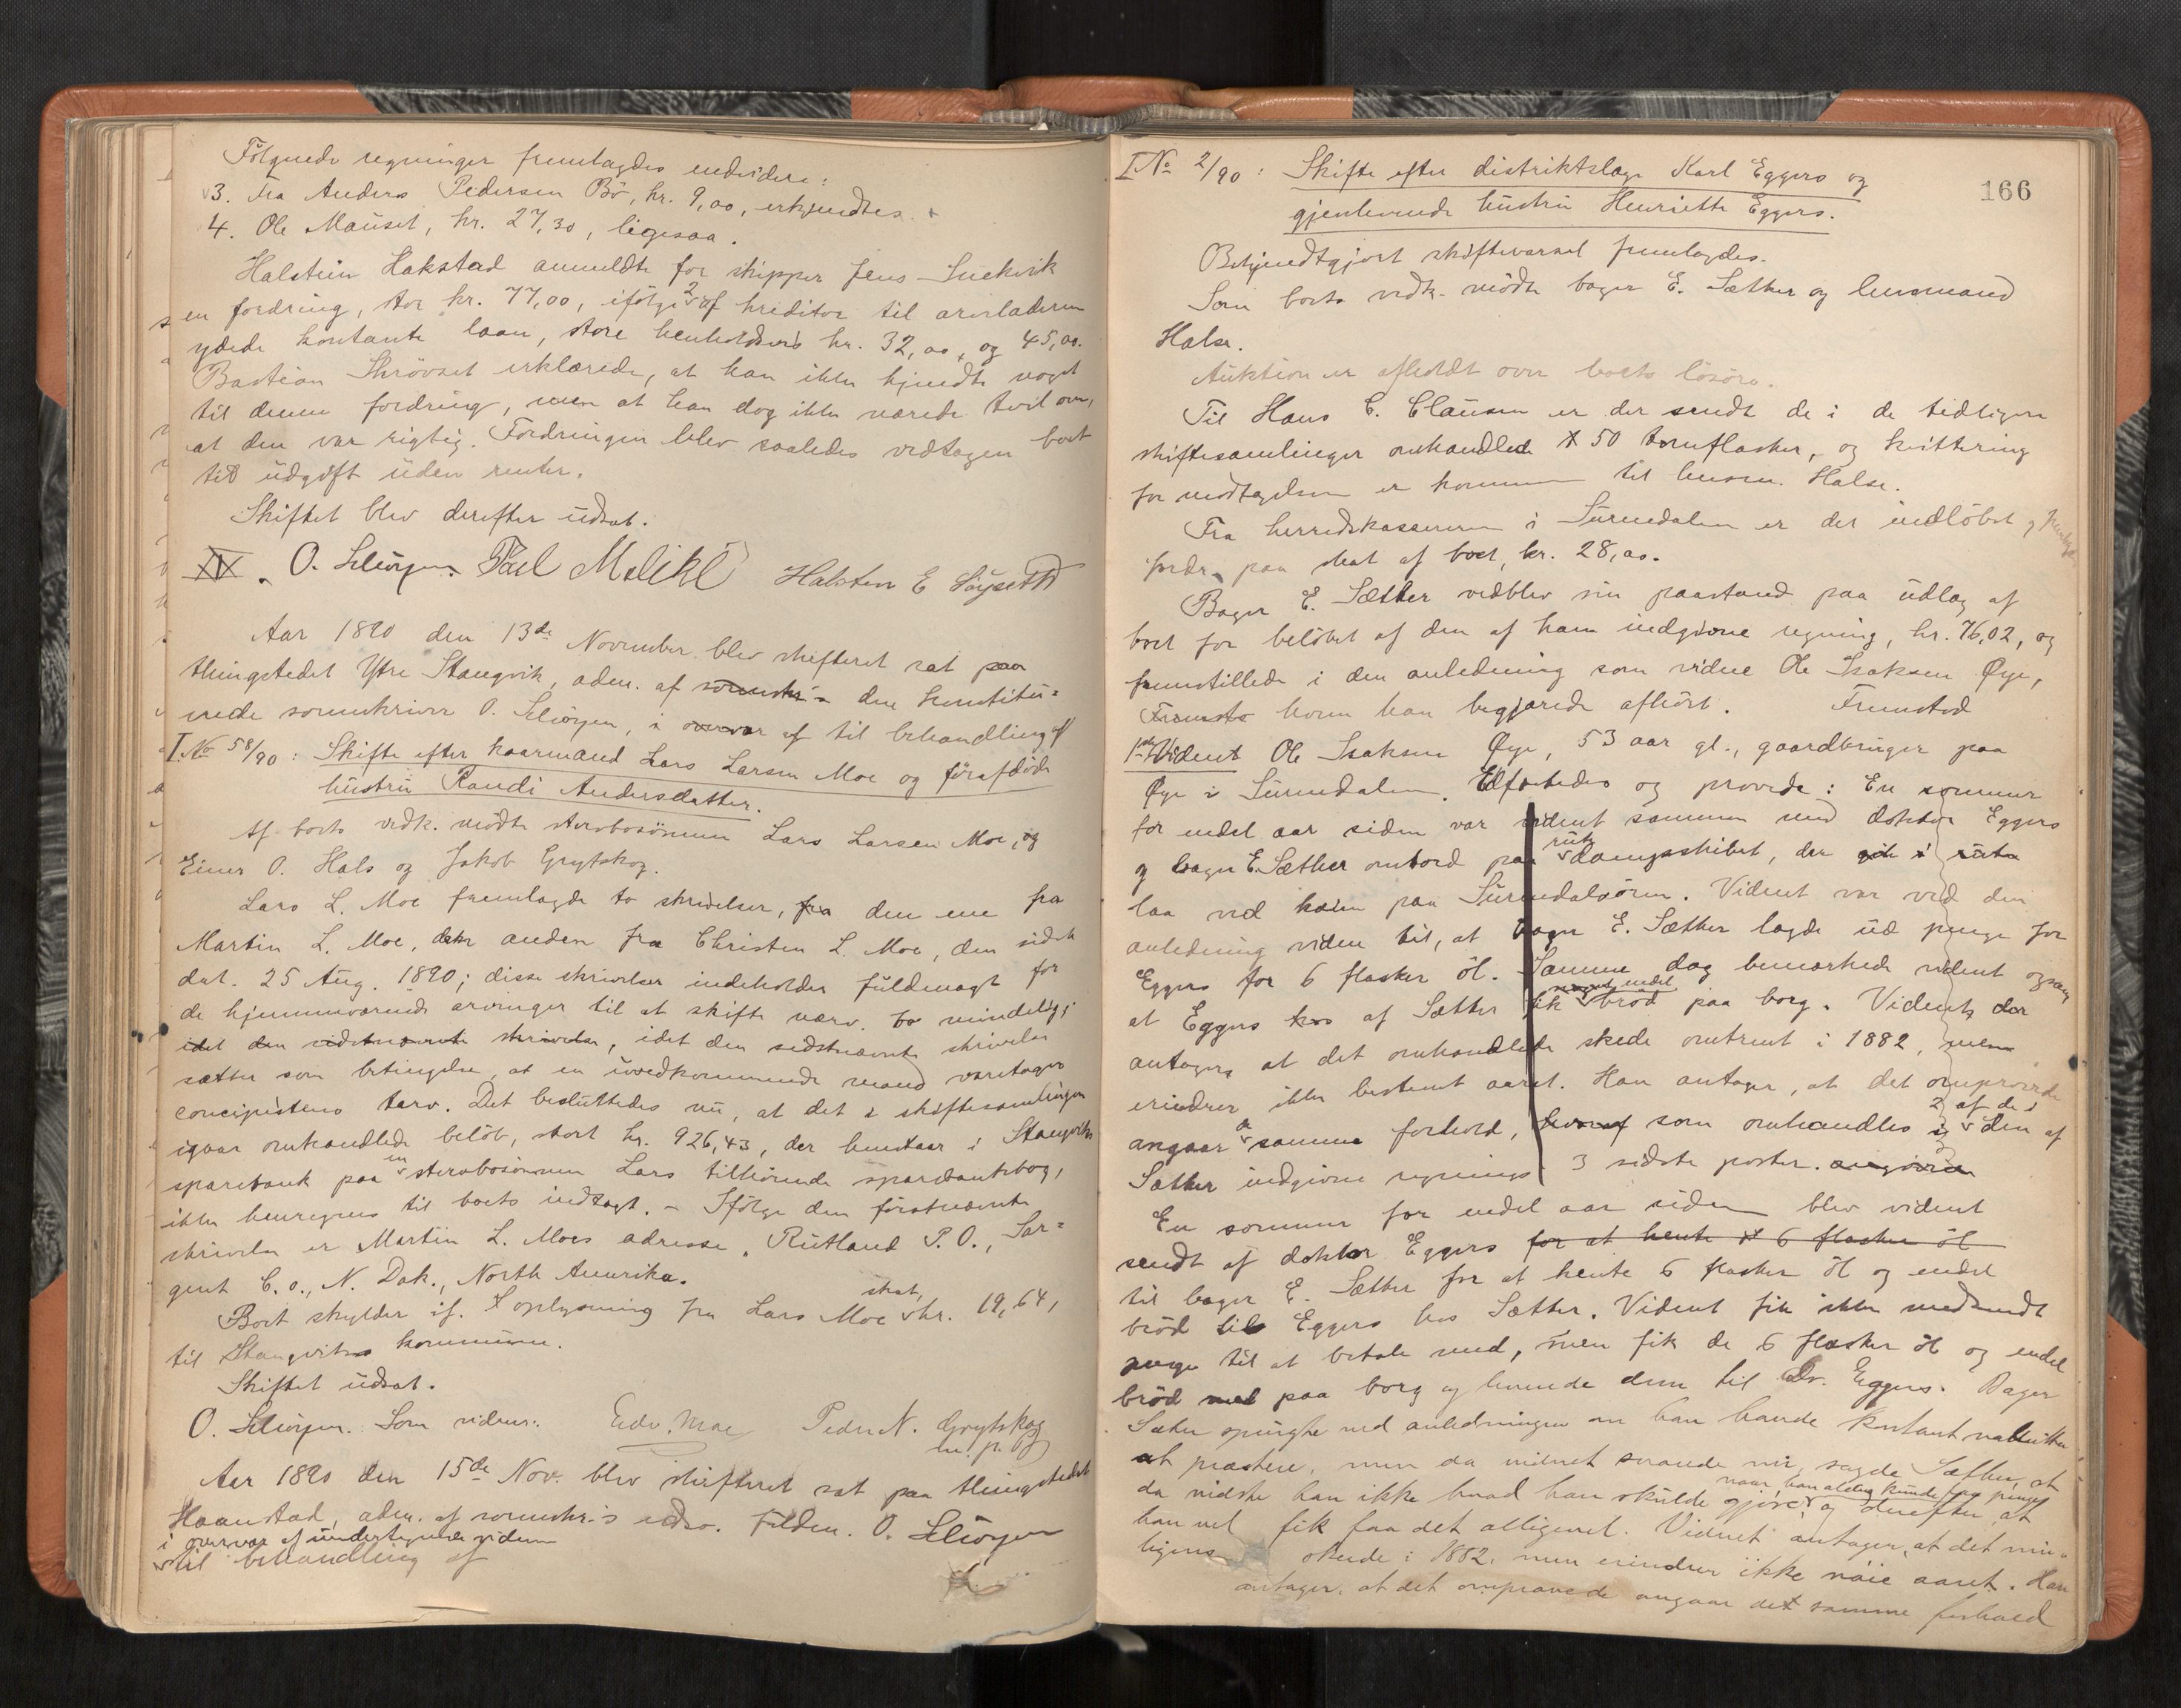 Følgende regninger fremlagdes endvidere:
3. Fra Anders Pedersen Bö, kr. 9,00, erkjendtes.
4. Ole Mauset, kr. 27,30, ligesaa.
Halstein Hakstad anmeldte for skipper Jens Snekvik
en fordring, stor kr. 77,00, ifølge 2 af kreditor til arveladeren
ydede kontante laan, store henholdsvis kr. 32,00 og 45,00.
Bastian Skrövset erklærede, at han ikke kjendte noget
til denne fordring, men at han dog ikke nærede tvil om,
at den var rigtig. Fordringen blev saaledes vedtagen boet
til udgift uden renter.
Skiftet blev derefter udsat.
O. Halsten E
Aar 1890 den 13de November blev skifteret sat paa
thingstedet Ytre Stangvik, adm. af sorenskr's den konstitu=
erede sorenskriver O. , i overvær af til behandling af
I. No 58/90: Skifte efter kaarmand Lars Larsen Moe og førafdöde
hustru Randi Andersdatter.
Af boets vedk. mödte sterbosönnen Lars Larsen Moe, og
Einer O. Hals og Jakob Grytskog.
Lars L. Moe fremlagde to skrivelser, fra den ene fra
Martin L. Moe, den anden fra Christen L. Moe, den sidste
dat. 25 Aug. 1890; disse skrivelser indeholder fuldmagt for
de hjemmeværende arvinger til at skifte værv. bo mindelig;
idet den sidstnævnte skrivelse, idet den sidstnævnte skrivelse
sætter som betingelse, at en uvedkommende mand varetager
concipistens tarv. Det besluttedes nu, at det i skiftesamlingen
igaar omhandlede belöb, stort kr. 926,43, der henstaar i Stangviks
sparebank paa en sterbosönnen Lars tilhörende sparebankbog,
ikke henregnes til boets indtægt. - Ifølge den förstnævnte
skrivelse er Martin L. Moes adresse, Rutland P.O., Sar=
gent C.o., N. Dak., North Amerika.
Boet skylder if. oplysning fra Lars Moe skat, kr. 19,64,
til Stangviks kommune.
Skiftet udsat.
O. Som vidner: Edv. Moe Peder N. Grytskog
m. p. P
Aar 1890 den 15de Nov. blev skifteret sat paa thingstedet
Haanstad, adm. af sorenskr's edsv. fuldm. O.
i overvær af undertegnede vidner
til behandling af
166
I No 2/90: Skifte efter distriktslæge Karl Eggers og
gjenlevende hustru Henriette Eggers.
Bekjendtgjort skiftevarsel fremlagdes.
Som boets vedk. mödte bager E. Sæther og lensmand
Halse.
Auktion er afholdt over boets lösöre.
Til Hans C. Clausen er der sendt de i de tidligere
skiftesamlinger omhandlede 50 tomflasker, og kvittering
for modtagelsen er kommen til lensm. Halse.
Fra herredskassereren i Surendalen er det indlöbet
fordr. paa skat af boet, kr. 28,00.
Bager E. Sæther vedblev sin paastand paa udlæg af
boet for belöbet af den af ham indgivne regning, kr. 76,02, og
fremstillede i den anledning som vidne Ole Isaksen Øye,
Fremsto hvem han begjærede afhört. Fremstod
1ste Vidne Ole Isaksen Øye, 53 aar gl., gaardbruger paa
Øye i Surendalen. Edfæstedes og provede: En sommer
for endel aar siden var vidnet sammen med doktor Eggers
og bager E. Sæther ombord paa rute dampskibet, der gik i rute
laa ved kaien paa Surendalsören. Vidnet var ved den
anledning vidne til, at bager E. Sæther lagde ud penge for
Eggers for 6 flasker öl. Samme dag bemærkede vidnet ogsaa,
at Eggers hos af Sæther fik endel bröd paa borg. Vidnet, der
antager, at det omhandlede skede omtrent i 1882, men
erindrer ikke bestemt aaret. Han antager, at det omprovede
angaar de samme forhold, hvoraf som omhandles i 2 af de i den af
Sæther indgivne regnings 3 sidste poster. angivne
En sommer for endel aar siden blev vidnet
sendt af doktor Eggers for at hente 6 flasker öl
til bager E. Sæther for at hente 6 flasker öl og endel
bröd til Eggers hos Sæther. Vidnet fik ikke medsendt
penge til at betale med, men fik de 6 flasker öl og endel
bröd med paa borg og bragte dem til Dr. Eggers. Bager
Sæther spurgte ved anledningen om han havde kontant
at præstere, men da vidnet svarede nei, sagde Sæther, at
da vidste han ikke hvad han skulde gjöre, naar han aldrig kunde faa penge og derefter, at
han vel fik faa det alligevel. Vidnet antager, at det
skede i 1882, men erindrer ikke nöie aaret. Han
antager, at det omprovede angaar det samme forhold